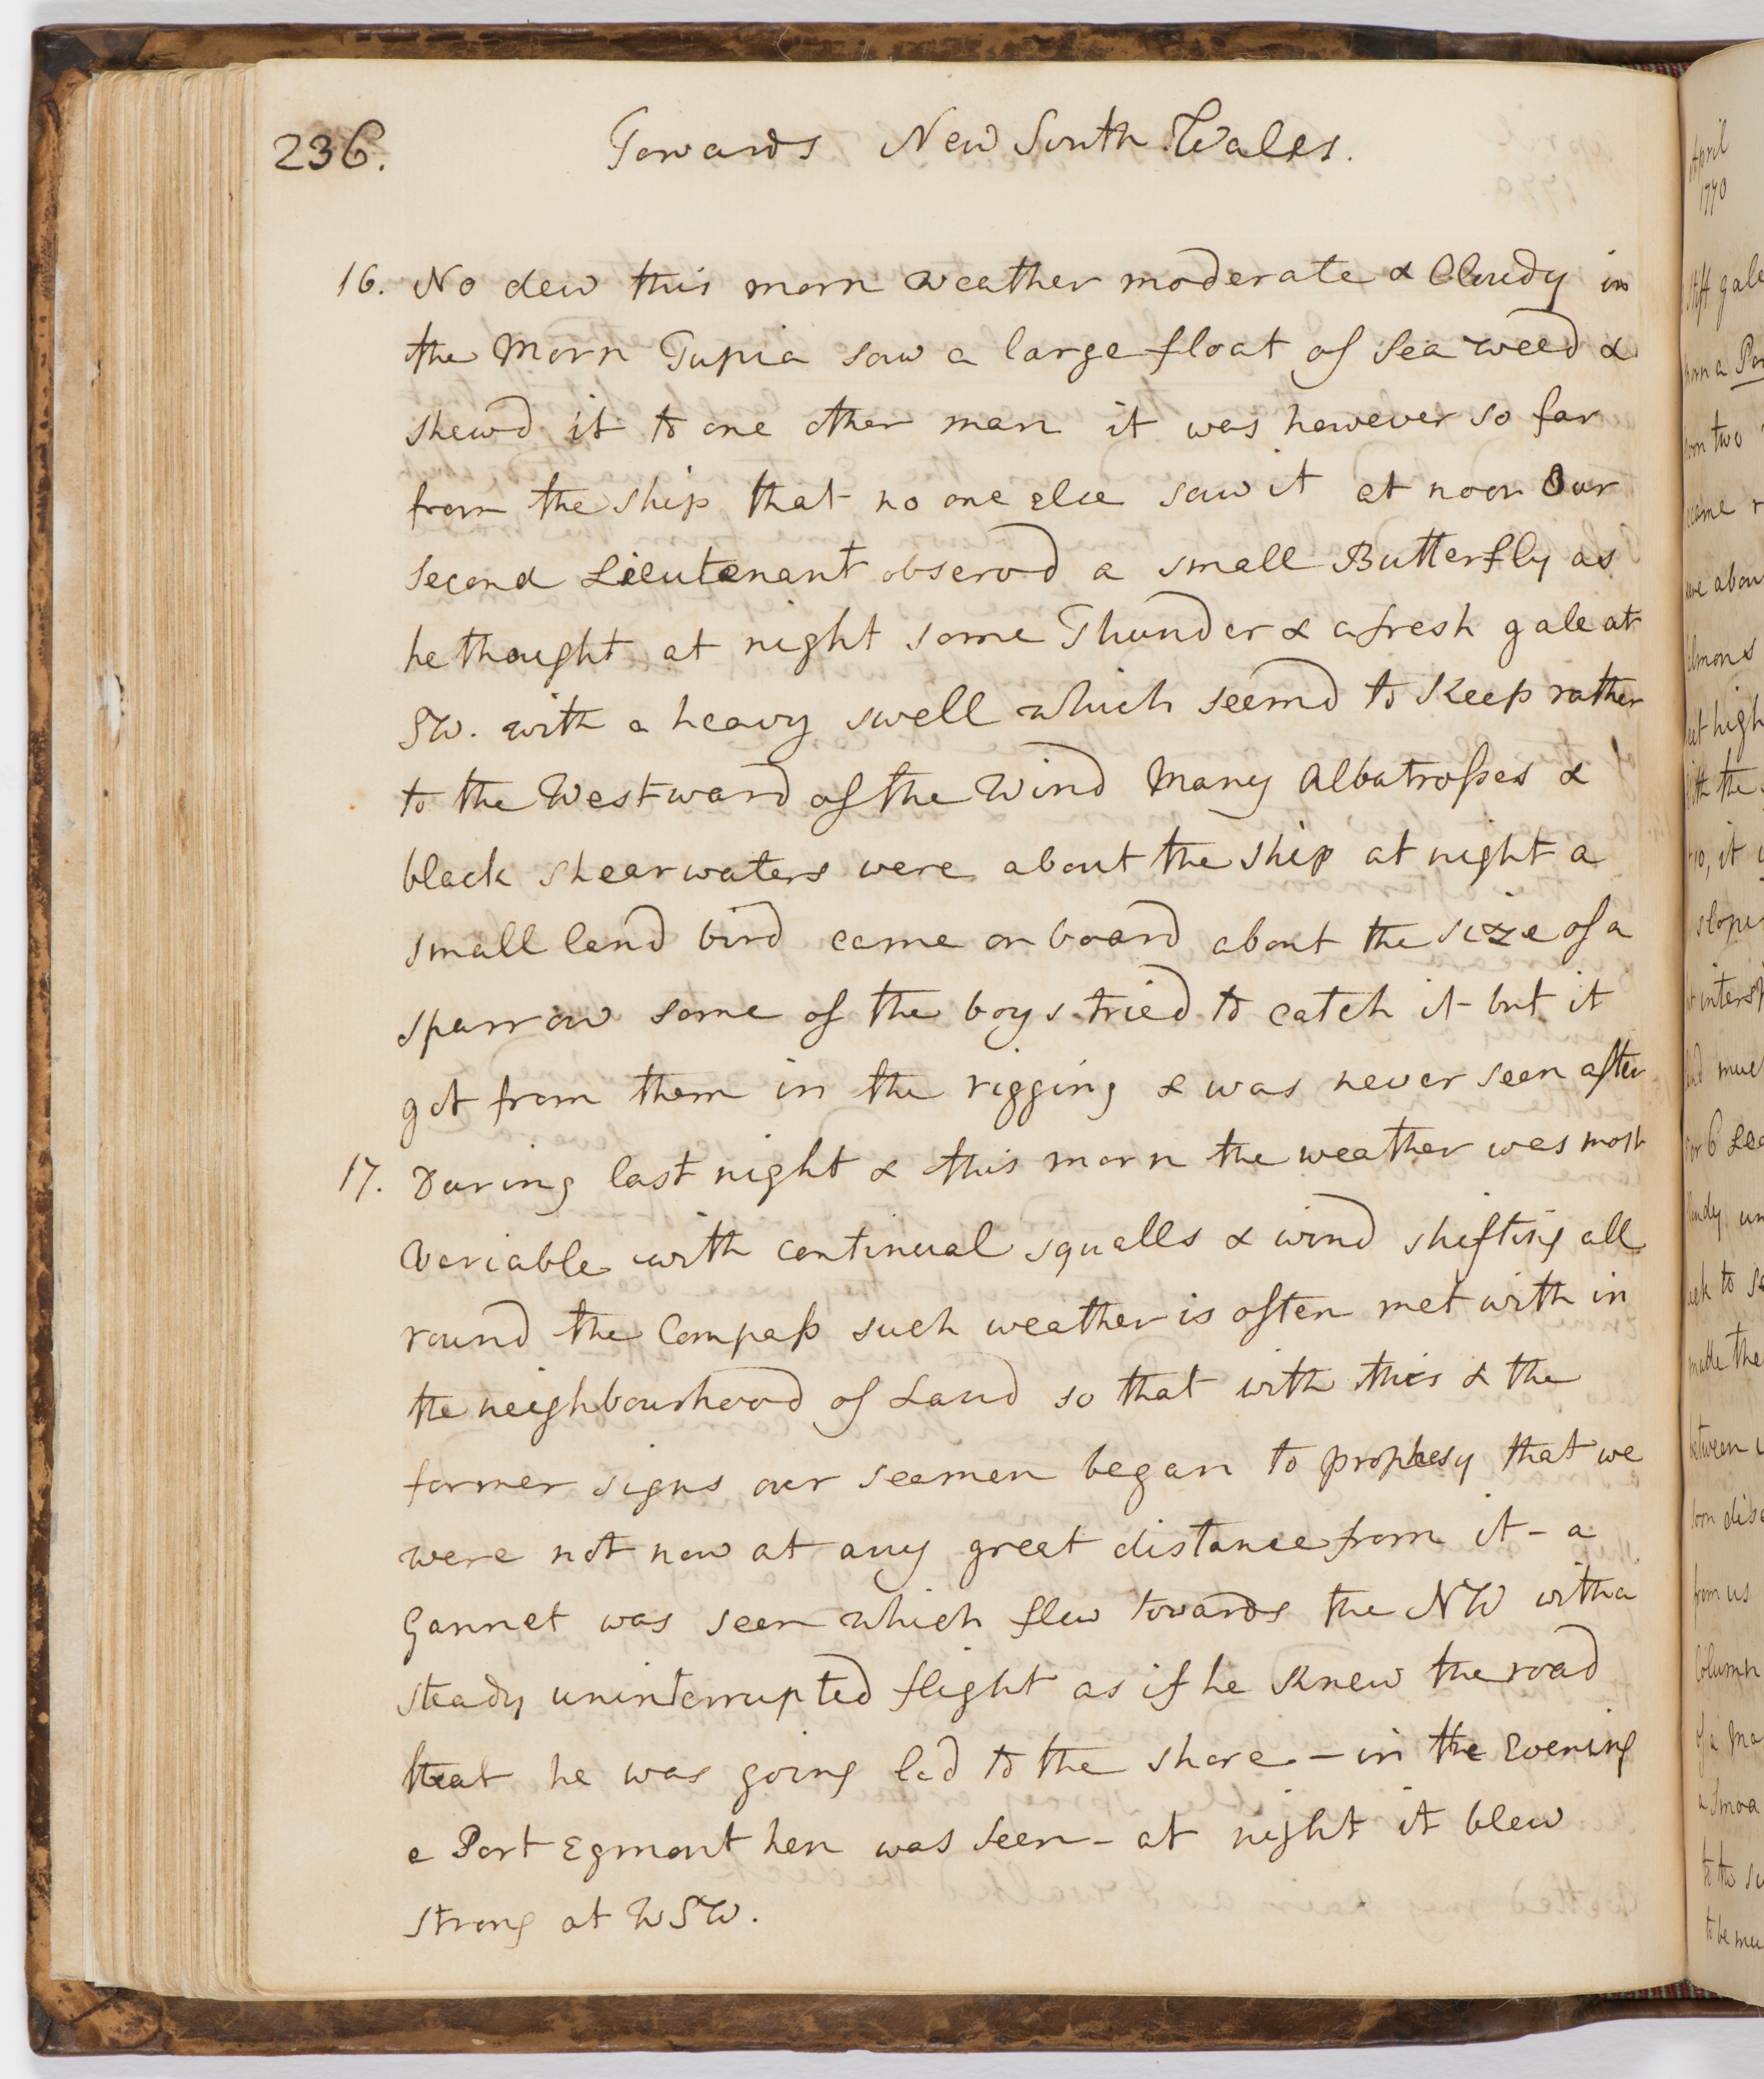 236. Towards New South Wales.
16. No dew this morn weather moderate & Cloudy in
the Morn Tupia saw a large float of Sea weed &
shewd it to one other man it was however so far
from the ship that no one else saw it at noon Our
second Lieutenant observd a small Butterfly as
he thought at night some Thunder & a fresh gale at
SW. with a heavy swell which seemd to Keep rather
to the Westward of the Wind Many Albatrosses &
black shearwaters were about the ship at night a
small land bird came on board about the size of a
sparrow some of the boys tried to catch it but it
got from them in the rigging & was never seen after
17. During last night & this morn the weather was most
variable with continual squalls & wind shifting all
round the Compass such weather is often met with in
the neighbourhood of Land so that with this & the
former signs our seamen began to prophesy that we
were not now at any great distance from it - a
Gannet was seen which flew towards the NW with a
steady uninterrupted flight as if he Knew the road
that he was going led to the shore - in the Evening
a Port Egmont hen was seen - at night it blew
strong at WSW.
April
1770